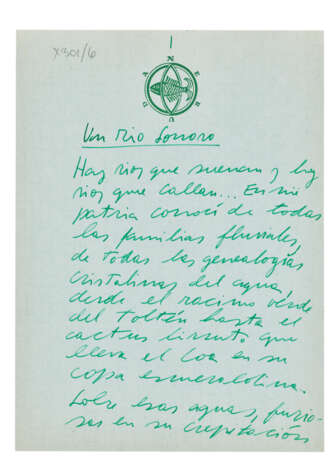 x301/6
I
NERUDA
Un rio sonoro
Hay rios que suenan y hay
rios que callan... En mi
patria conocí de todas
las familias fluviales,
de todas las genealogías
cristalinas del agua,
desde el racimo verde
del Toltén hasta el
cactus hirsuto que
lleva el Loa en su
copa esmeraldina.
Sobre esas aguas, furio-
sas en su crepitación